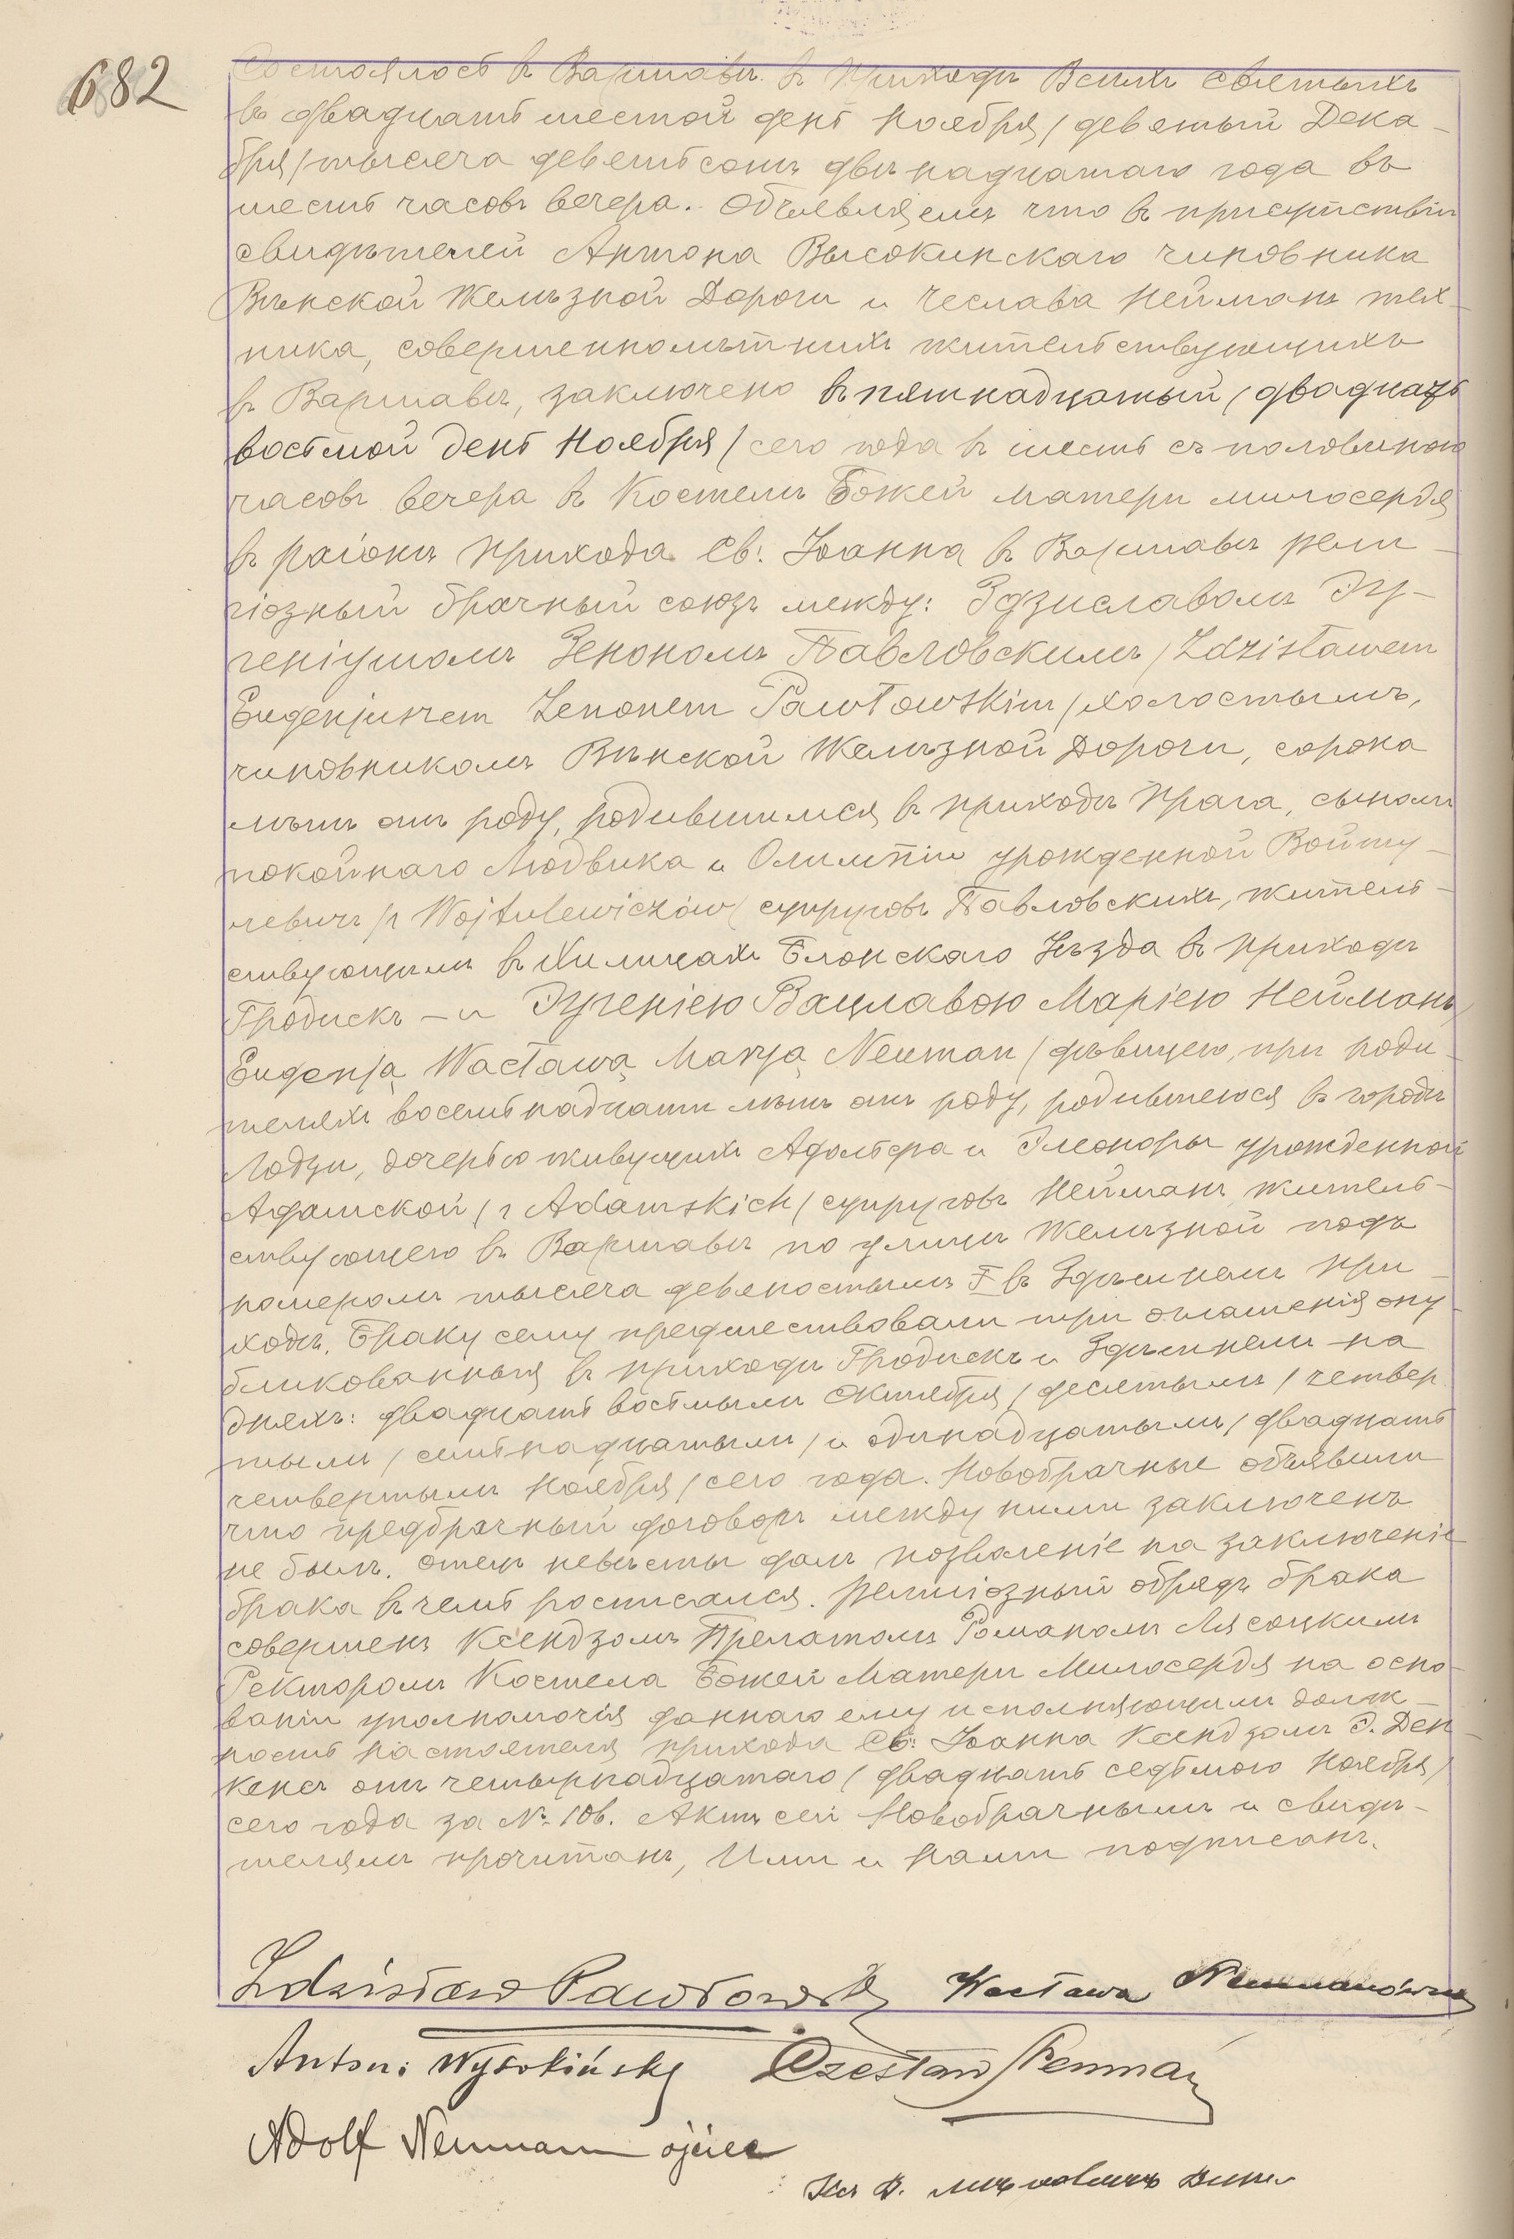 682
Состоялось въ Варшавѣ въ приходѣ Всѣхъ Святыхъ
въ двадцать шестой день Ноября / девятый Дека-
бря / тысяча девятьсотъ двѣнадцатаго года въ
шесть часовъ вечера. Объявляемъ что въ присутствіи
свидѣтелей Антона Высокинскаго чиновника
Вѣнской Желѣзной Дороги и Чеслава Нейманъ тех-
ника, совершеннолѣтнихъ жительствующихъ
въ Варшавѣ, заключено въ пятнадцатый / двадцать
восьмой день Ноября / сего года въ шесть съ половиною
часовъ вечера въ Костелѣ Божей Матери милосердя
въ раіонѣ прихода Св. Іоанна въ Варшавѣ рели-
гіозный брачный союзъ между: Здзиславомъ Эу-
геніушомъ Зенономъ Павловскимъ / Zdzisławem
Eugenjuszem Zenonem Pawłowskim / холостымъ,
чиновникомъ Вѣнской Желѣзной Дороги, сорока
лѣтъ отъ роду, родившимся въ приходѣ Прага, сыномъ
покойнаго Людвика и Олимпіи урожденной Войту-
левичъ / z Wojtulewiczów / супруговъ Павловскихъ, житель-
ствующимъ въ Хилицахъ Блонскаго Уѣзда въ приходѣ
Гродискъ – и Эугеніею Вацлавою Маріею Нейманъ /
Eugenją Wacławą Marją Neuman / дѣвицею, при роди-
теляхъ восемьнадцати лѣтъ отъ роду, родившеюся въ городѣ
Лодзи, дочерью живущихъ Адольфа и Элеоноры урожденной
Адамской / z Adamskich / супруговъ Нейманъ, житель-
ствующею въ Варшавѣ по улицѣ Желѣзной подъ
номеромъ тысяча девяностымъ Г въ здѣшнемъ при-
ходѣ. Браку сему предшествовали три оглашенія опу-
бликованныя въ приходѣ Гродискъ и здѣшнемъ на
дняхъ: двадцать восьмымъ Октября / десятымъ / четвер-
тымъ / семьнадцатымъ / и одинадцатымъ / двадцать
четвертымъ Ноября / сего года. Новобрачные объявили
что предбрачный договоръ между ними заключенъ
не былъ. Отецъ невѣсты далъ позволеніе на заключеніе
брака въ чемъ росписался. Религіозный обрядъ брака
совершенъ Ксендзомъ Прелатомъ Романомъ Лясоцкимъ
Ректоромъ Костела Божей Матери Милосердя на осно-
ваніи уполномочія даннаго ему исполняющимъ долж-
ность настоятеля прихода Св. Іоанна Ксендзомъ Э. Ден-
кенсъ отъ четырнадцатаго / двадцать седьмого Ноября /
сего года за № 106. Актъ сей Новобрачнымъ и свидѣ-
телямъ прочитанъ, Ими и Нами подписанъ.
Zdzisław Pawłowski Wacława Neumanówna
Antoni Wysokiński Czesław Neuman
Adolf Neumann ojciec